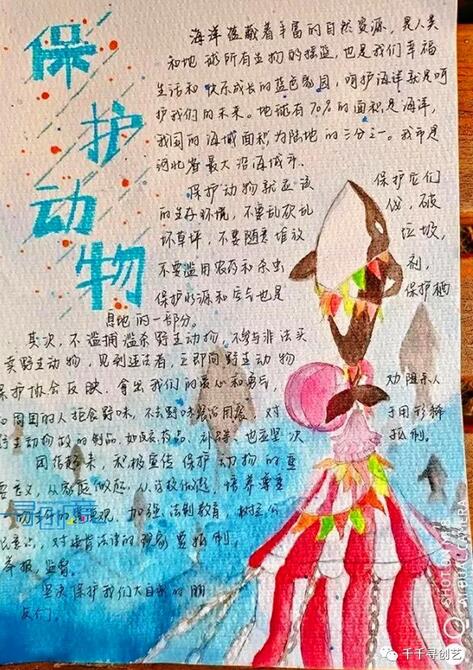 保护动物
海洋蕴藏着丰富的自然资源，是人类
和地球所有生物的摇篮，也是我们幸福
生活和快乐成长的蓝色家园，呵护海洋就是呵
护我们的未来。地球有70%的面积是海洋，
我国的海域面积为陆地的三分之一。我市是
河北省最大沿海城市。
保护动物就应该 保护它们
的生存环境，不要乱砍乱 伐，破
坏草坪，不要随意堆放 垃圾，
不要滥用农药和杀虫 剂，
保护水源和空气也是 保护栖
息地的一部分。
其次，不滥捕滥杀野生动物，不参与非法买
卖野生动物，见到违法者，立即向野生动物
保护协会反映，拿出我们的爱心和勇气， 劝阻亲人
和周围的人拒食野味，不去野味餐馆用餐，对 于用珍稀
野生动物做的制品，如 药品、补品等，也要坚决 抵制。
积极宣传保护动物的重
要意义，从家庭做起，从学校做起，培养尊重
加强法制教育，树立公
民意识，对违背法律的现象要抵制，
举报，监督。
坚决保护我们大自然的朋
友们。
SHOT ON MI
千千寻创艺